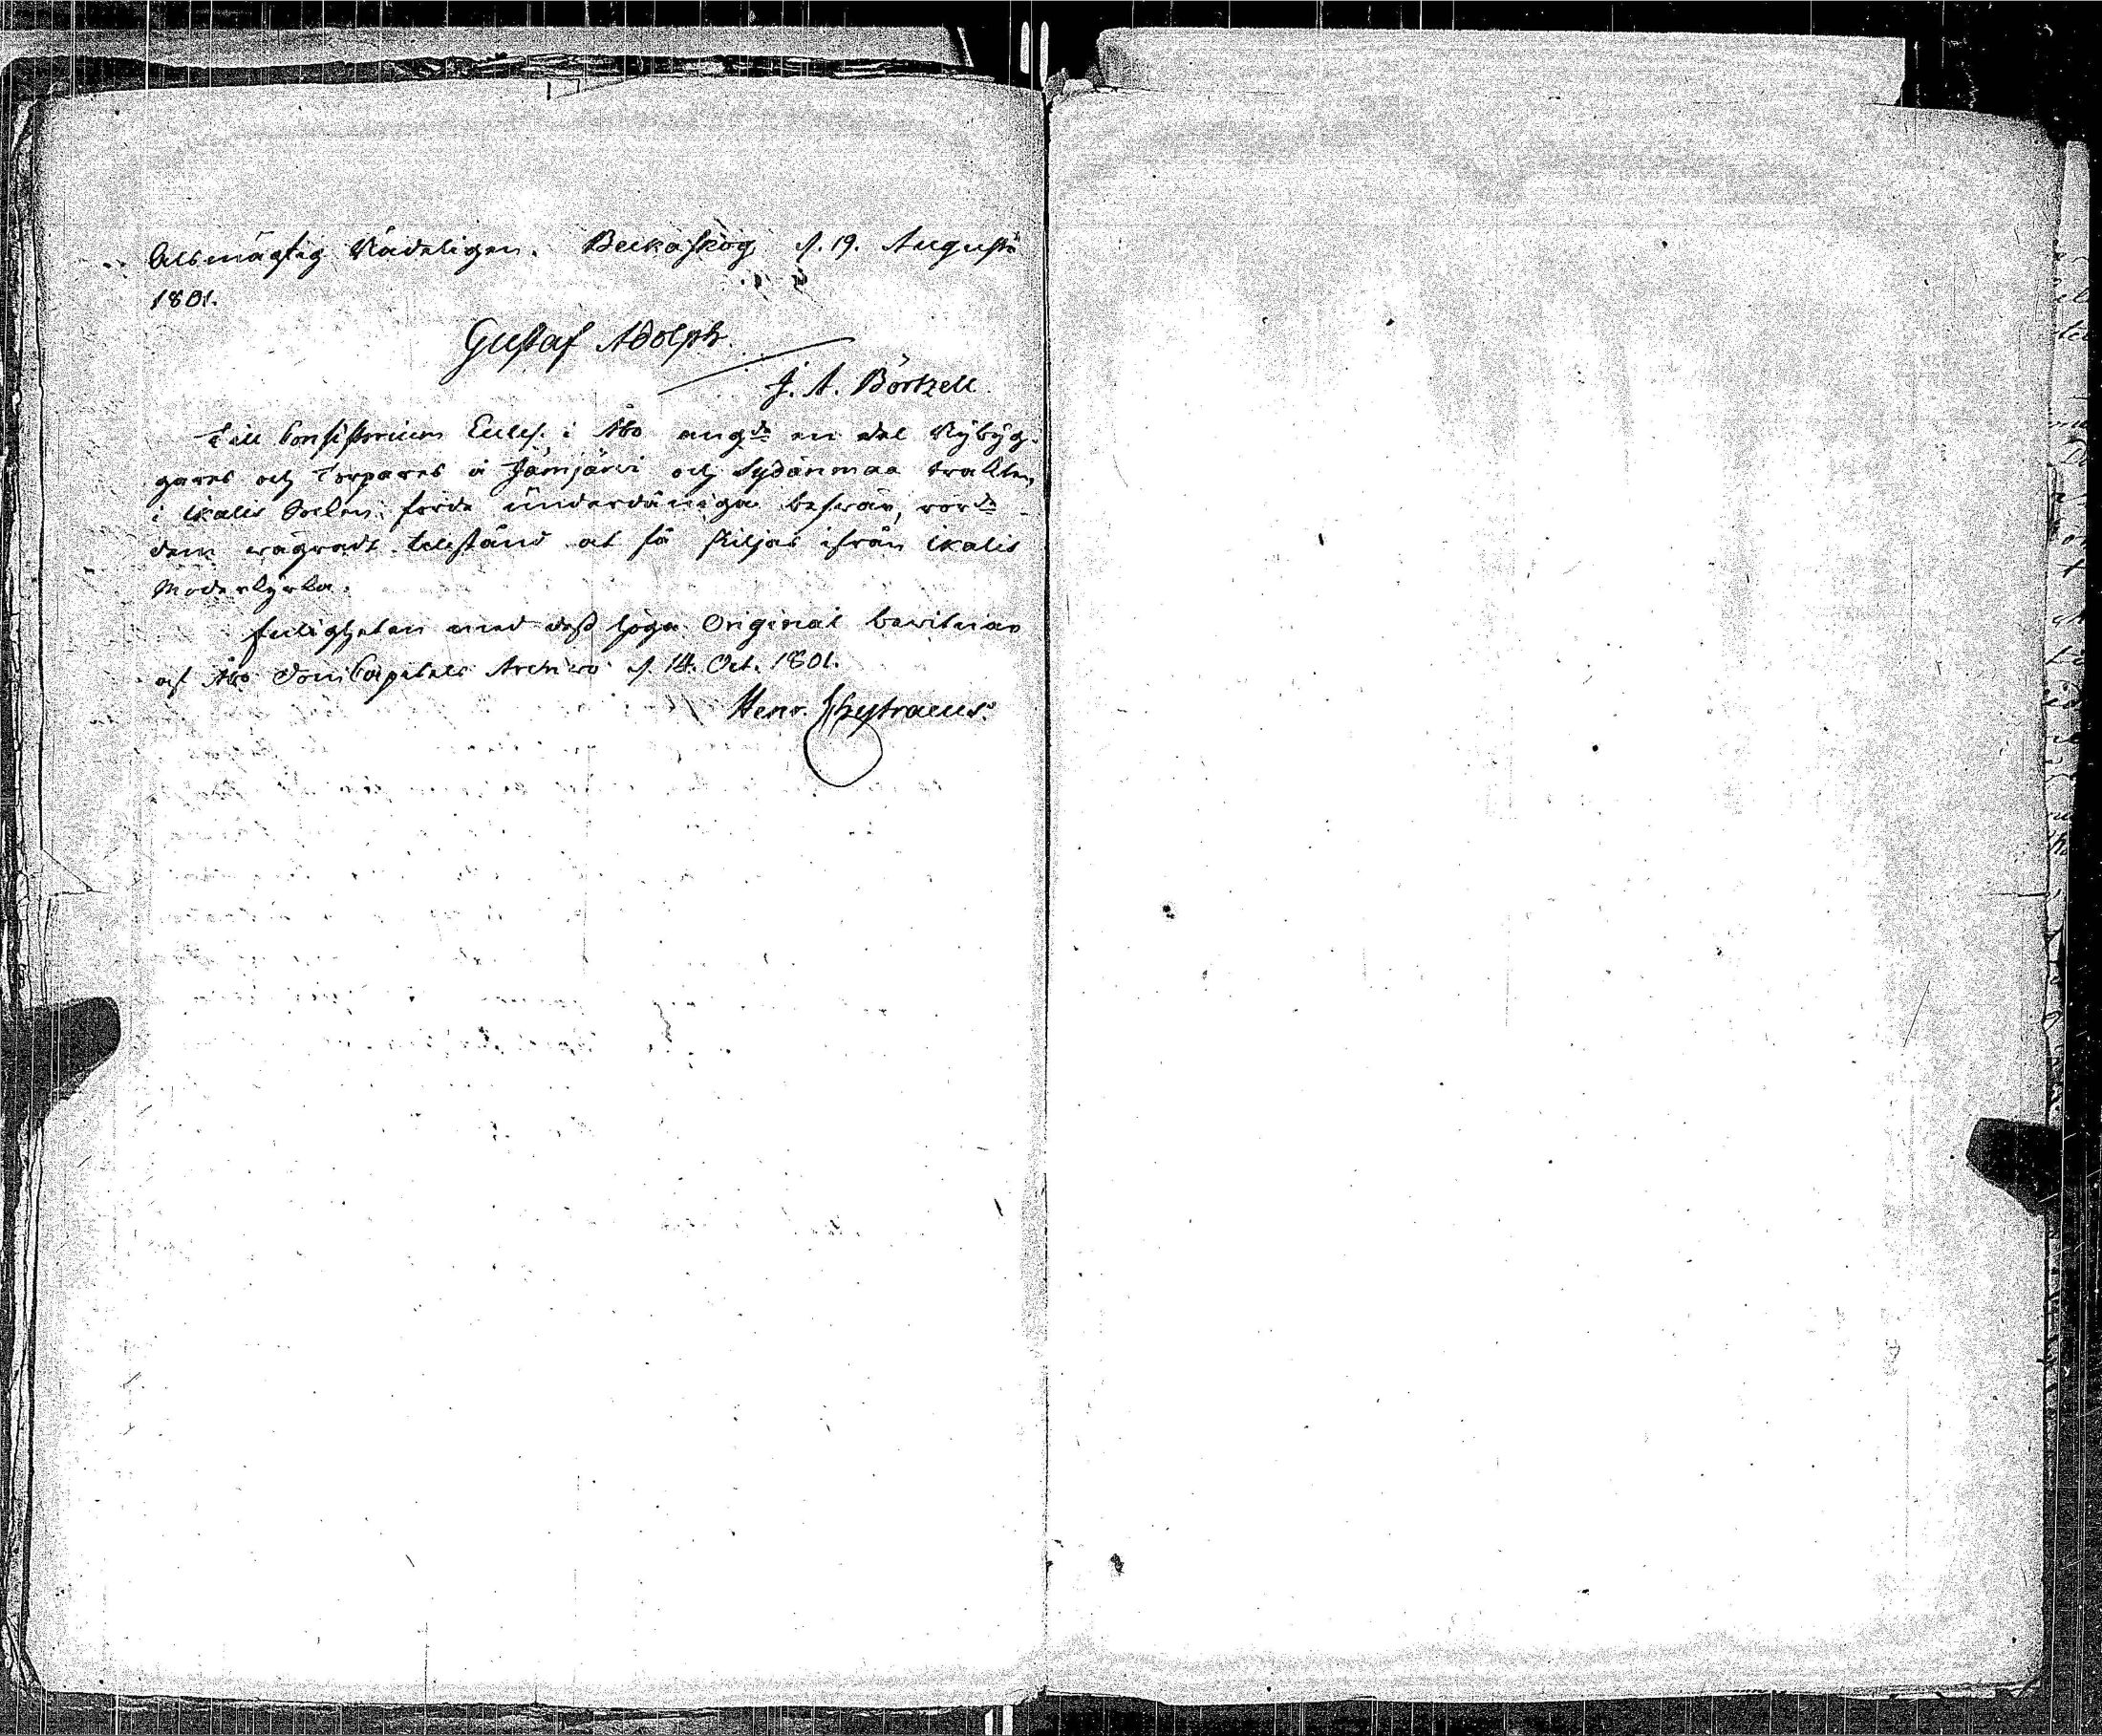 Allsmägtig Nådeligen. Beckaskog d. 19. Augusti
1801.
Gustaf Adolph.
J. A. Börtzell.
Till Consistorium Eccles. i Åbo angde en del Nybyg-
gares och Torpares å Jämijärvi och Sydänmaa trakten,
i Ikalis Sockn. förde underdåniga besvär, rörde
dem wägradt tillstånd at få skiljas ifrån Ikalis
Moderkyrka.
Enligheten med dess höga Original bewitnar
af Åbo DomCapitels Archivo d. 14. Oct. 1801.
Henr. Chytraeus.